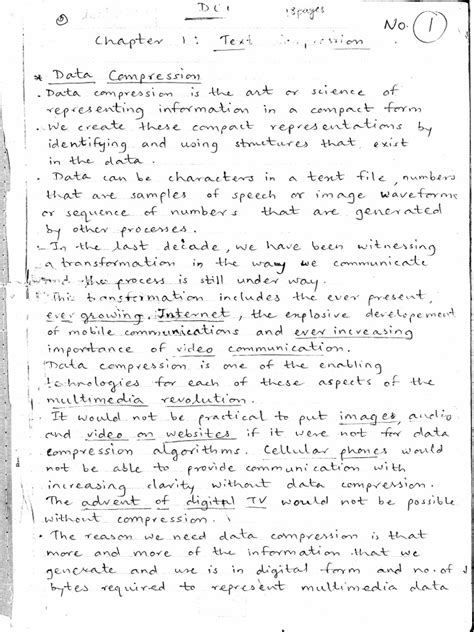 DCI 18pages
No. 1
Chapter 1: Text
* Data Compression
. Data compression is the art or science of
representing information in a compact form
. We create these compact representations by
identifying and using structures that exist
in the data.
. Data can be characters in a text file, numbers
that are samples of speech or image waveforms
or sequence of numbers that are generated
by other processes.
- In the last decade, we have been witnessing
a transformation in the way we communicate
and the process is still under way.
. This transformation includes the ever present,
ever growing Internet, the explosive developement
of mobile communications and ever increasing
importance of video communication.
Data compression is one of the enabling
technologies for each of these aspects of the
multimedia revolution.
. It would not be practical to put images, audio
and video on websites if it were not for data
compression algorithms. Cellular phones would
not be able to provide communication with
increasing clarity without data compression.
The advent of digital TV would not be possible
without compression.
. The reason we need data compression is that
more and more of the information that we
generate and use is in digital form and no. of
bytes required to represent multimedia data